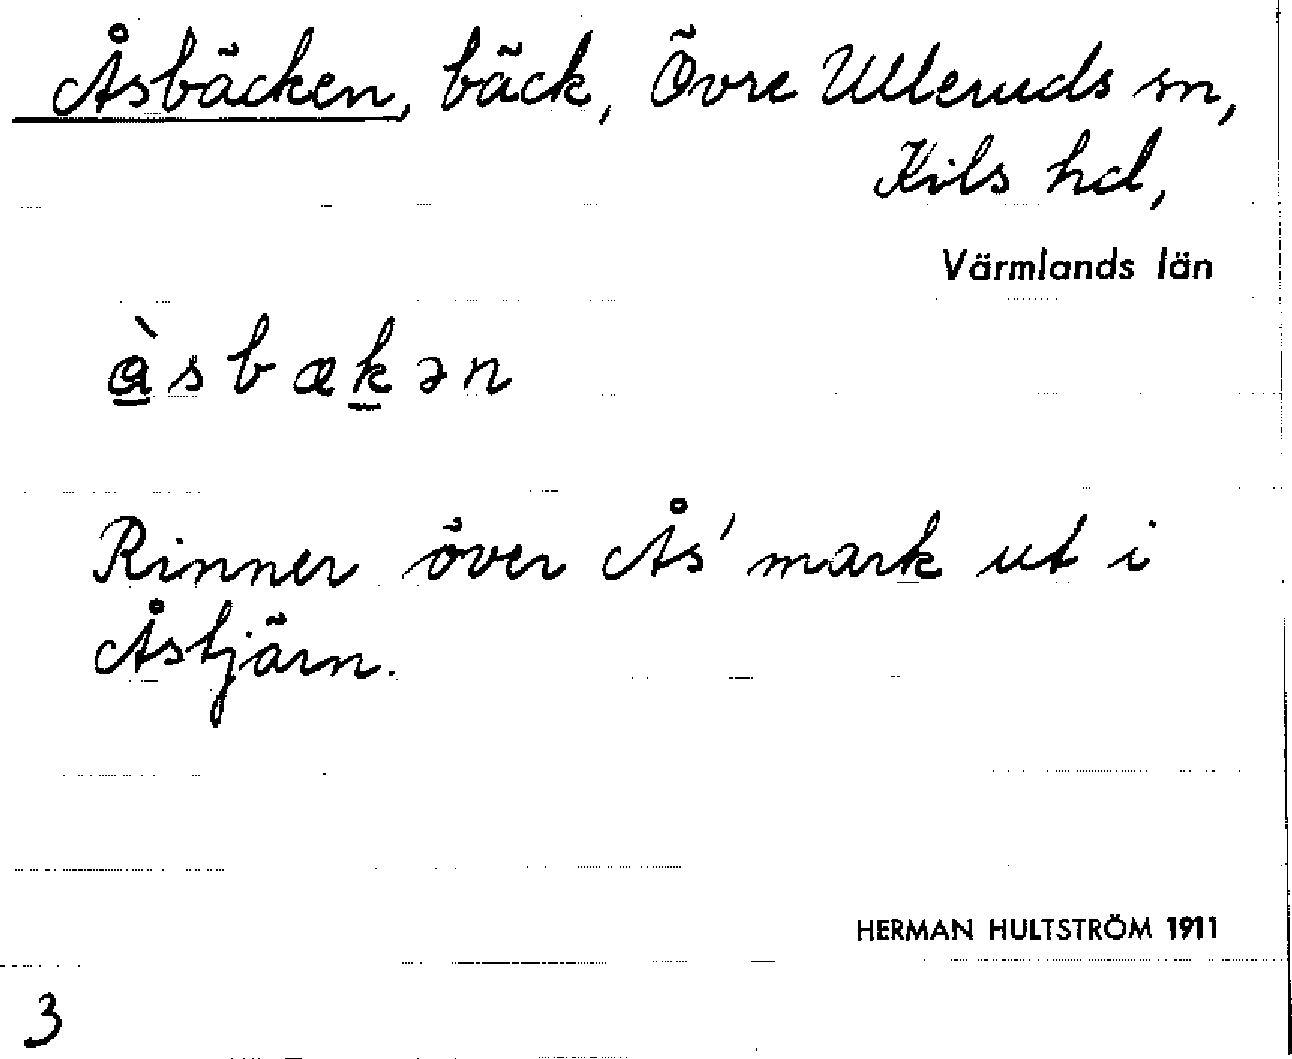 Åsbäcken, bäck, Övre Ulleruds sn,
Kils hd,
Värmlands län
å̀sbækən
Rinner över Ås' mark ut i
Åstjärn.
HERMAN HULTSTRÖM 1911
3